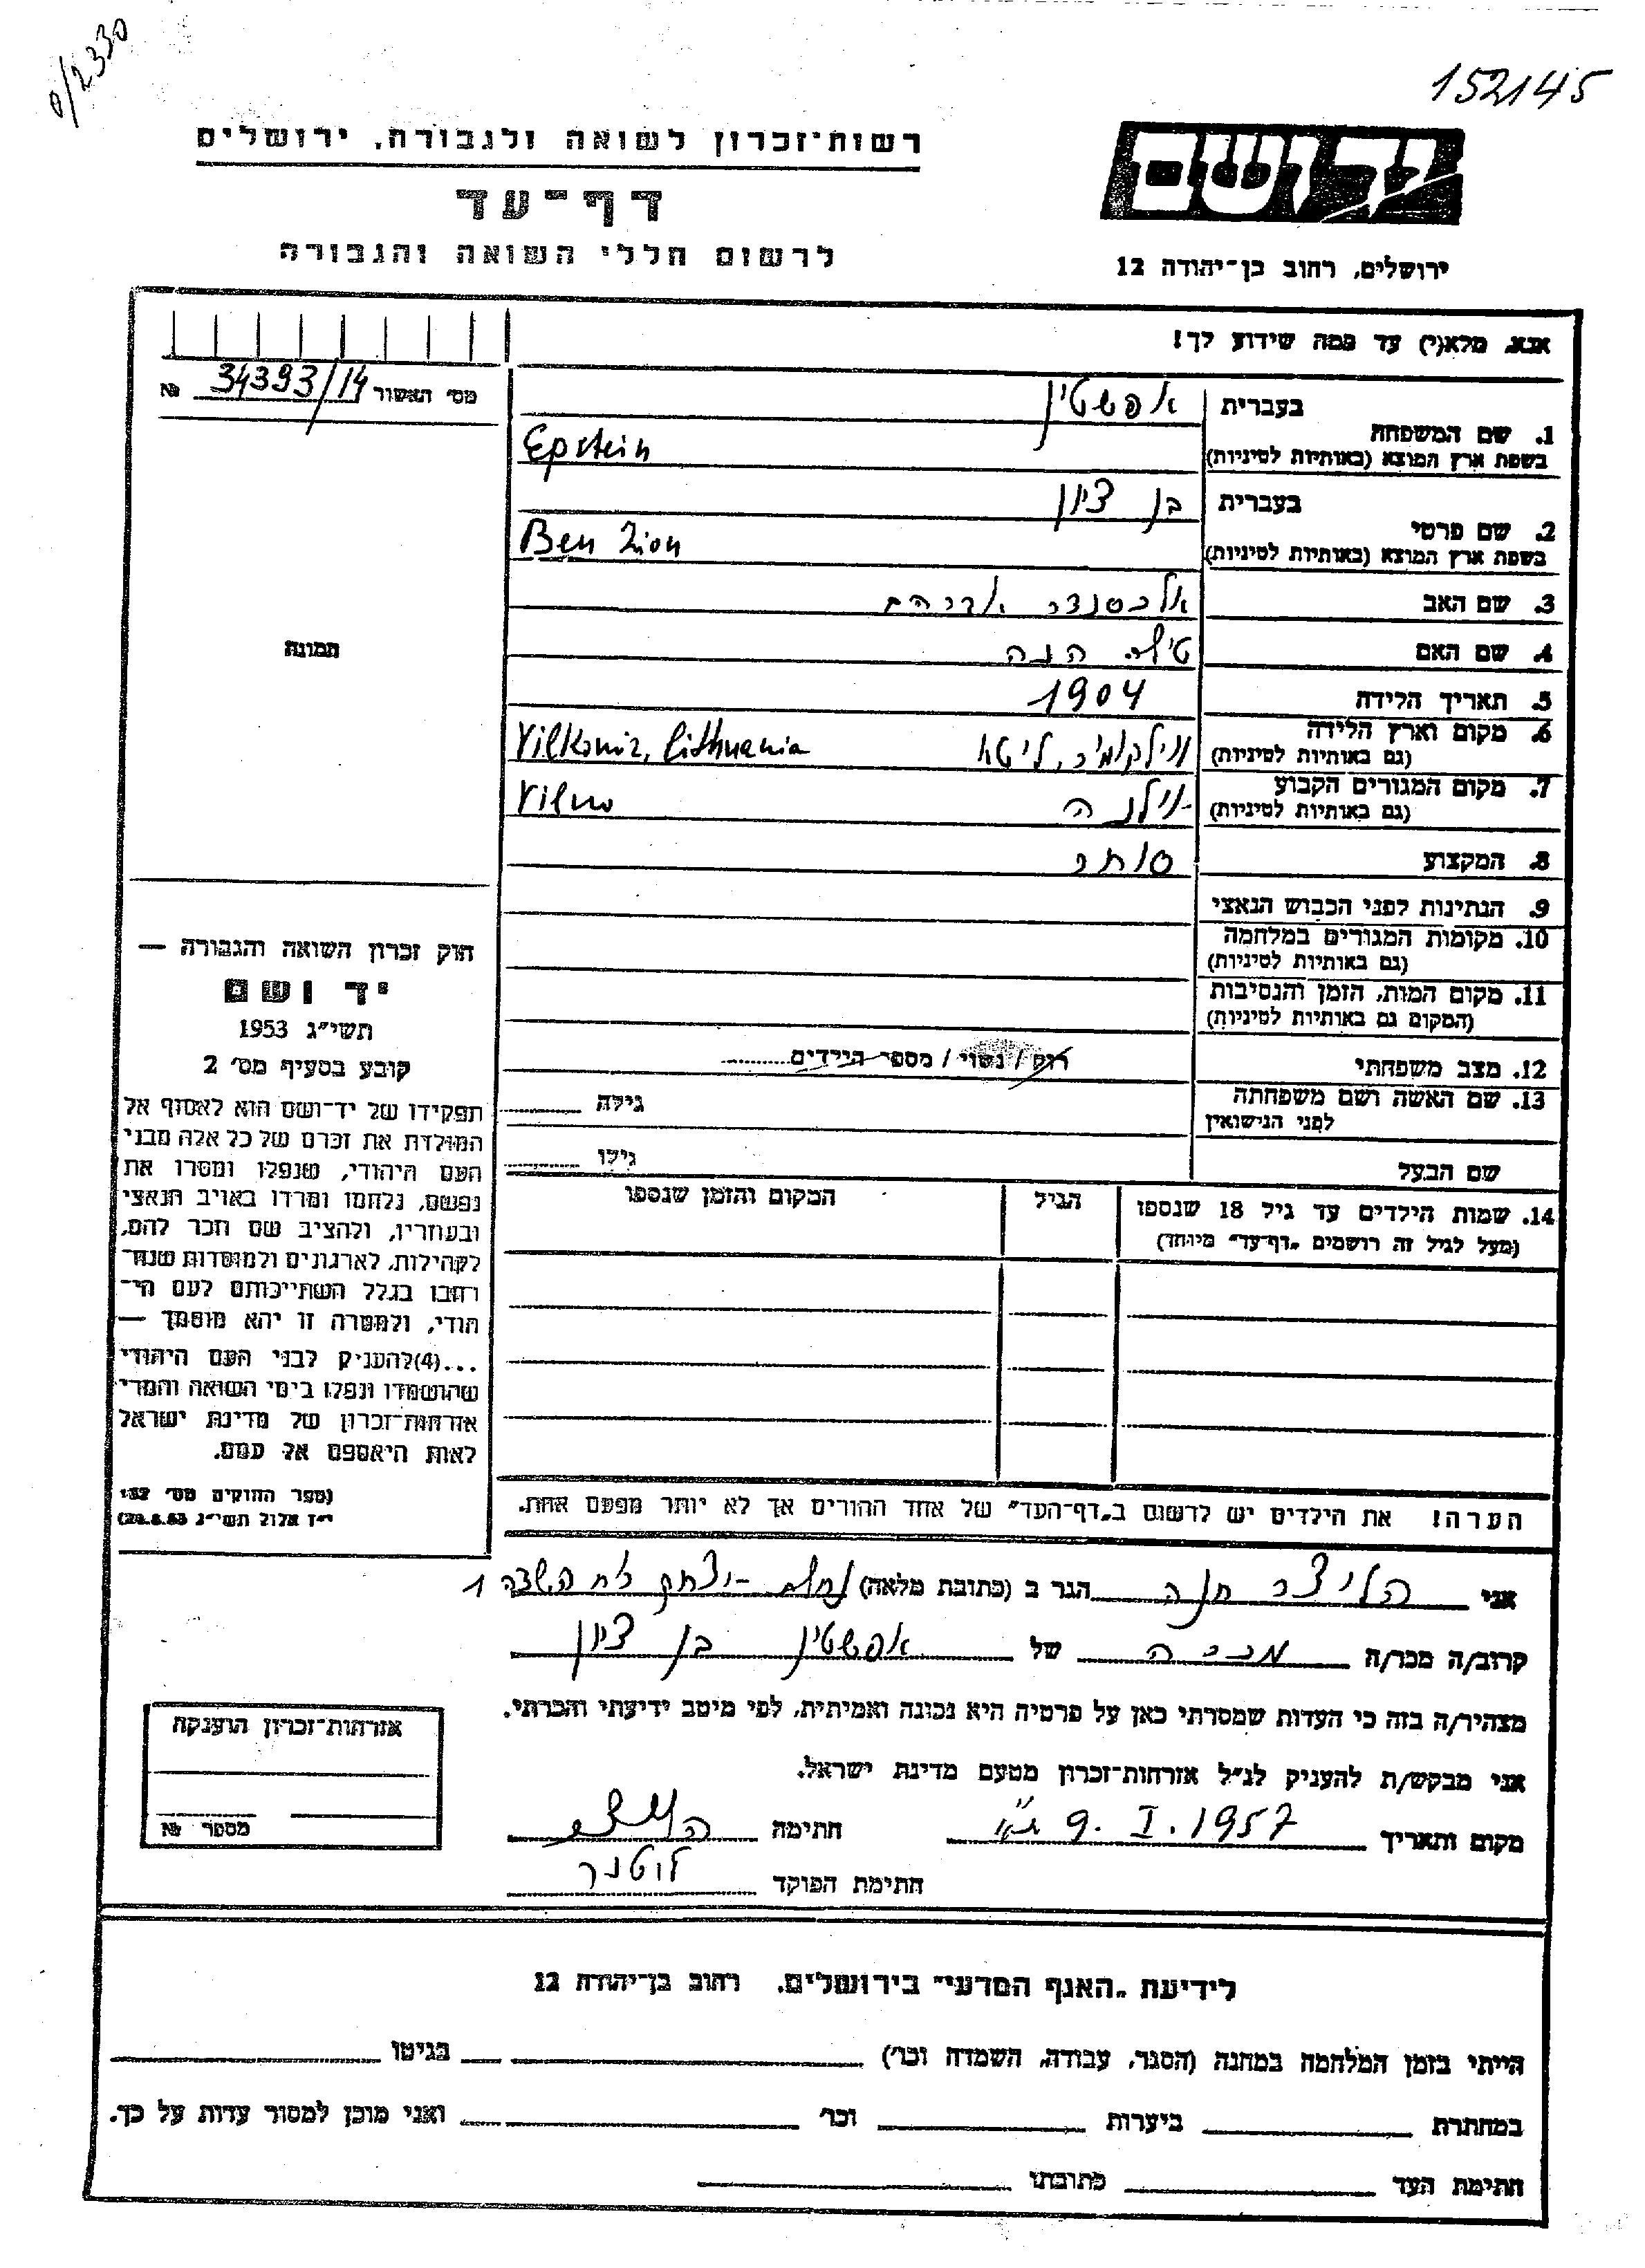 0/2330
152145
רשות־זכרון לשואה ולגבורה, ירושלים
דף־עד
לרשום חללי השואה והגבורה
יד ושם
ירושלים, רחוב בן־יהודה 12
אנא, מלא(י) עד כמה שידוע לך!
מס׳ האשור 34393/14 №
1. שם המשפחה בעברית אפשטין
בשפת ארץ המוצא (באותיות לטיניות) Epstein
2. שם פרטי בעברית בן ציון
בשפת ארץ המוצא (באותיות לטיניות) Ben Zion
3. שם האב אלכסנדר אברהם
4. שם האם טילה חנה
5. תאריך הלידה 1904
6. מקום וארץ הלידה וילקומיר, ליטא Vilkomir, Lithuania
(גם באותיות לטיניות)
7. מקום המגורים הקבוע וילנה Vilno
(גם באותיות לטיניות)
8. המקצוע סוחר
9. הנתינות לפני הכבוש הנאצי
10. מקומות המגורים במלחמה
(גם באותיות לטיניות)
11. מקום המות, הזמן והנסיבות
(המקום גם באותיות לטיניות)
12. מצב משפחתי רוק / נשוי / מספר הילדים
13. שם האשה ושם משפחתה גילה
לפני הנישואין
שם הבעל גילו
14. שמות הילדים עד גיל 18 שנספו הגיל המקום והזמן שנספו
(מעל לגיל זה רושמים „דף־עד״ מיוחד)
תמונה
חוק זכרון השואה והגבורה —
יד ושם
תשי״ג 1953
קובע בסעיף מס׳ 2
תפקידו של יד־ושם הוא לאסוף אל
המולדת את זכרם של כל אלה מבני
העם היהודי, שנפלו ומסרו את
נפשם, נלחמו ומרדו באויב הנאצי
ובעוזריו, ולהציב שם וזכר להם,
לקהילות, לארגונים ולמוסדות שנח־
רחבו בגלל השתייכותם לעם הי־
הודי, ולמטרה זו יהא מוסמך —
...(4)להעניק לבני העם היהודי
שהושמדו ונפלו בימי השואה והמרי
אזרחות־זכרון של מדינת ישראל
לאות היאספם אל עמם.
(ספר החוקים מס׳ 132
י״ז אלול תשי״ג 28.8.53)
הערה! את הילדים יש לרשום ב„דף־העד״ של אחד ההורים אך לא יותר מפעם אחת.
אני הליצר חנה הגר ב (כתובת מלאה) נחלת־יצחק רח השדה 1
קרוב/ה מכר/ה מכרה של אפשטין בן ציון
מצהיר/ה בזה כי העדות שמסרתי כאן על פרטיה היא נכונה ואמיתית, לפי מיטב ידיעתי והכרתי.
אני מבקש/ת להעניק לנ״ל אזרחות־זכרון מטעם מדינת ישראל.
מקום ותאריך 9. I. 1957 חתימה
חתימת הפוקד לוטנר
אזרחות־זכרון הוענקה
מספר №
לידיעת „האגף המדעי״ בירושלים, רחוב בן־יהודה 12
הייתי בזמן המלחמה במחנה (הסגר, עבודה, השמדה וכו׳) בגיטו
במחתרת ביערות וכו׳ ואני מוכן למסור עדות על כך.
חתימת העד כתובתו